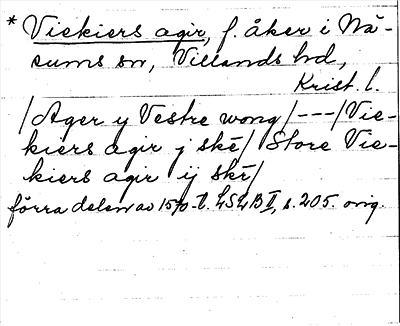 * Viekiers agir, f. åker i Nä-
sums sn, Villands hd,
Krist. l.
/Ager y Vestre wong/---/Vie-
kiers agir j skē/ Store Vie-
kiers agir ij skē/
förra delen av 1570-t. LSLB II, s. 205. orig.